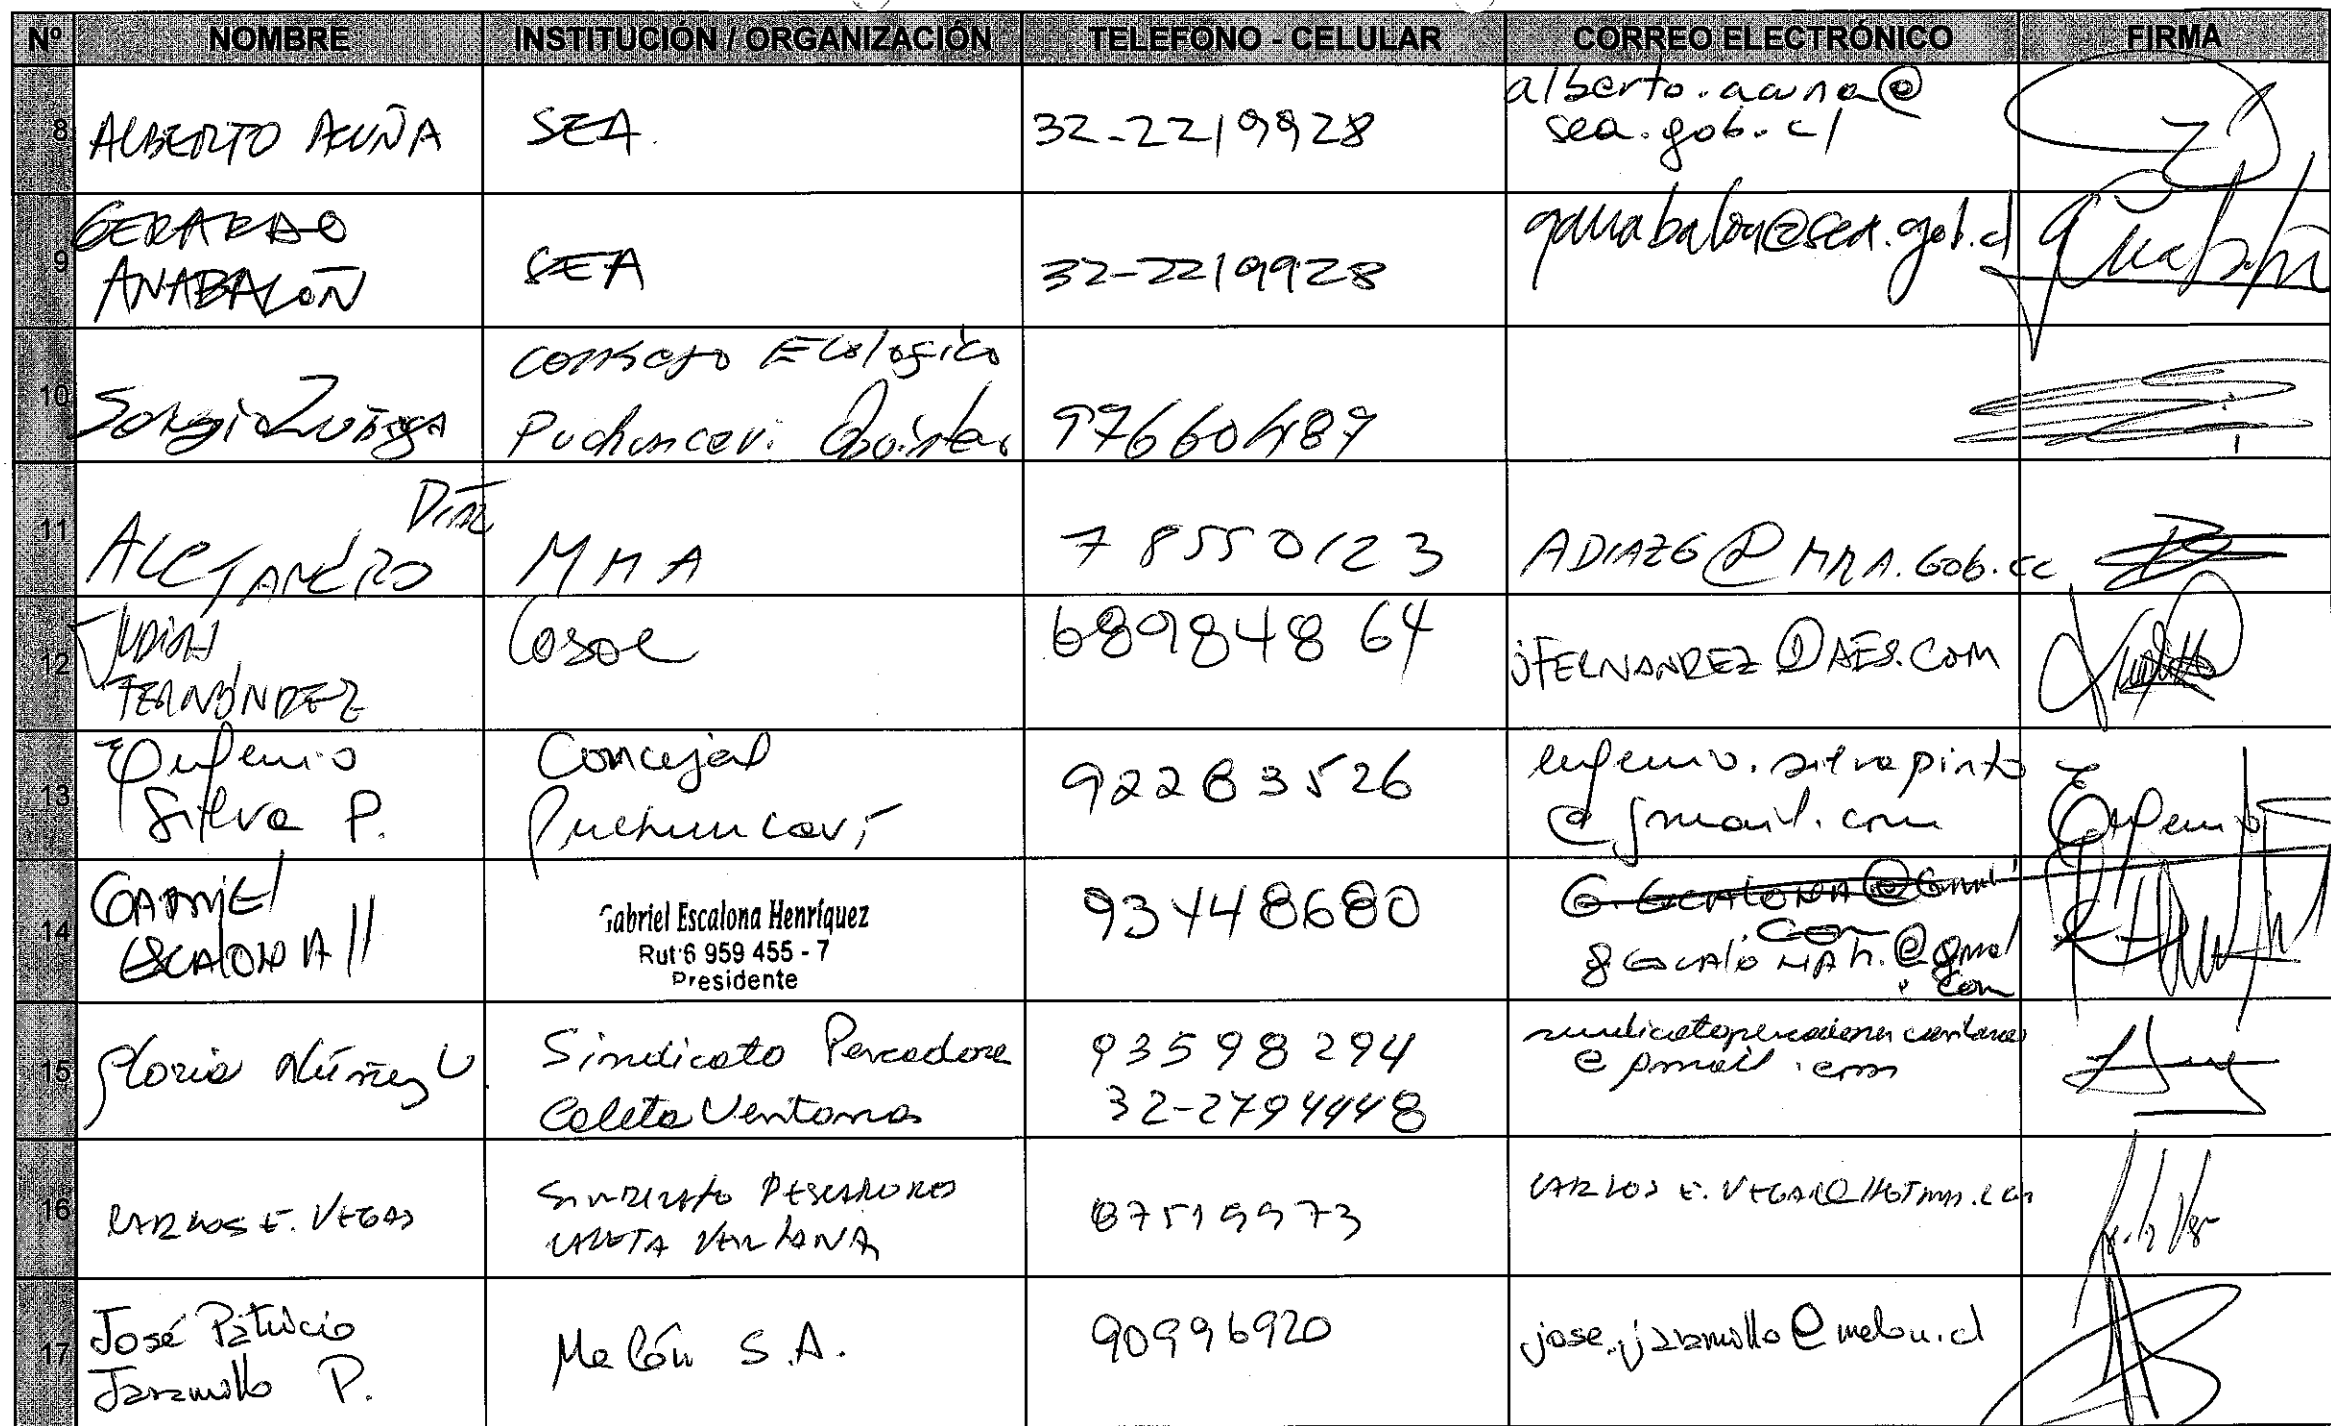 Nº NOMBRE INSTITUCIÓN / ORGANIZACIÓN TELEFONO - CELULAR CORREO ELECTRÓNICO FIRMA
8 ALBERTO ACUÑA SEA. 32-2219928 alberto.acuna@
sea.gob.cl
9 GERARDO
ANABALÓN SEA 32-2219928 ganabalon@sea.gob.cl
10 Sergio Zuñiga Consejo Ecologico
Puchuncavi Quintero 97660489
11 Alejandro Díaz MMA 78550123 ADIAZG@MMA.Gob.cl
12 JUDITH
FERNÁNDEZ 68984864 jFERNANDEZ@AES.COM
13 Eugenio
Silva P. Concejal
Puchuncaví 92283526 eugenio.silvapinto
@gmail.com
14 GABRIEL
ESCALONA H Gabriel Escalona Henríquez
Rut:6 959 455 - 7
Presidente 93448680 G.ESCALONA@Gmail
.com
gescalonah.@gmal
.com
15 Gloria Núñez V. Sindicato Pescadores
Caleta Ventanas 93598294
32-2794448
@gmail.com
16 CARLOS E. VEGAS SINDICATO PESCADORES
CALETA VENTANA 87519973
17 José Patricio
Jaramillo P. Melón S.A. 90996920 jose.jaramillo@melon.cl